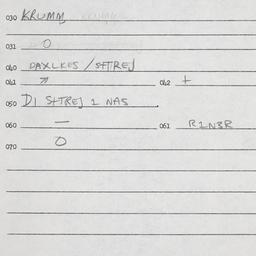 030 KRUMM
031 O
040 DAXLKES / SHTREJ
041 ↗ 042 +
050 DI SHTREJ 1 NAS
060 — 061 R1N3R
070 O